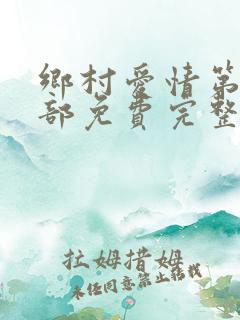 鄉村愛情第
部免費完整
拉姆措姆
未经同意禁止转载